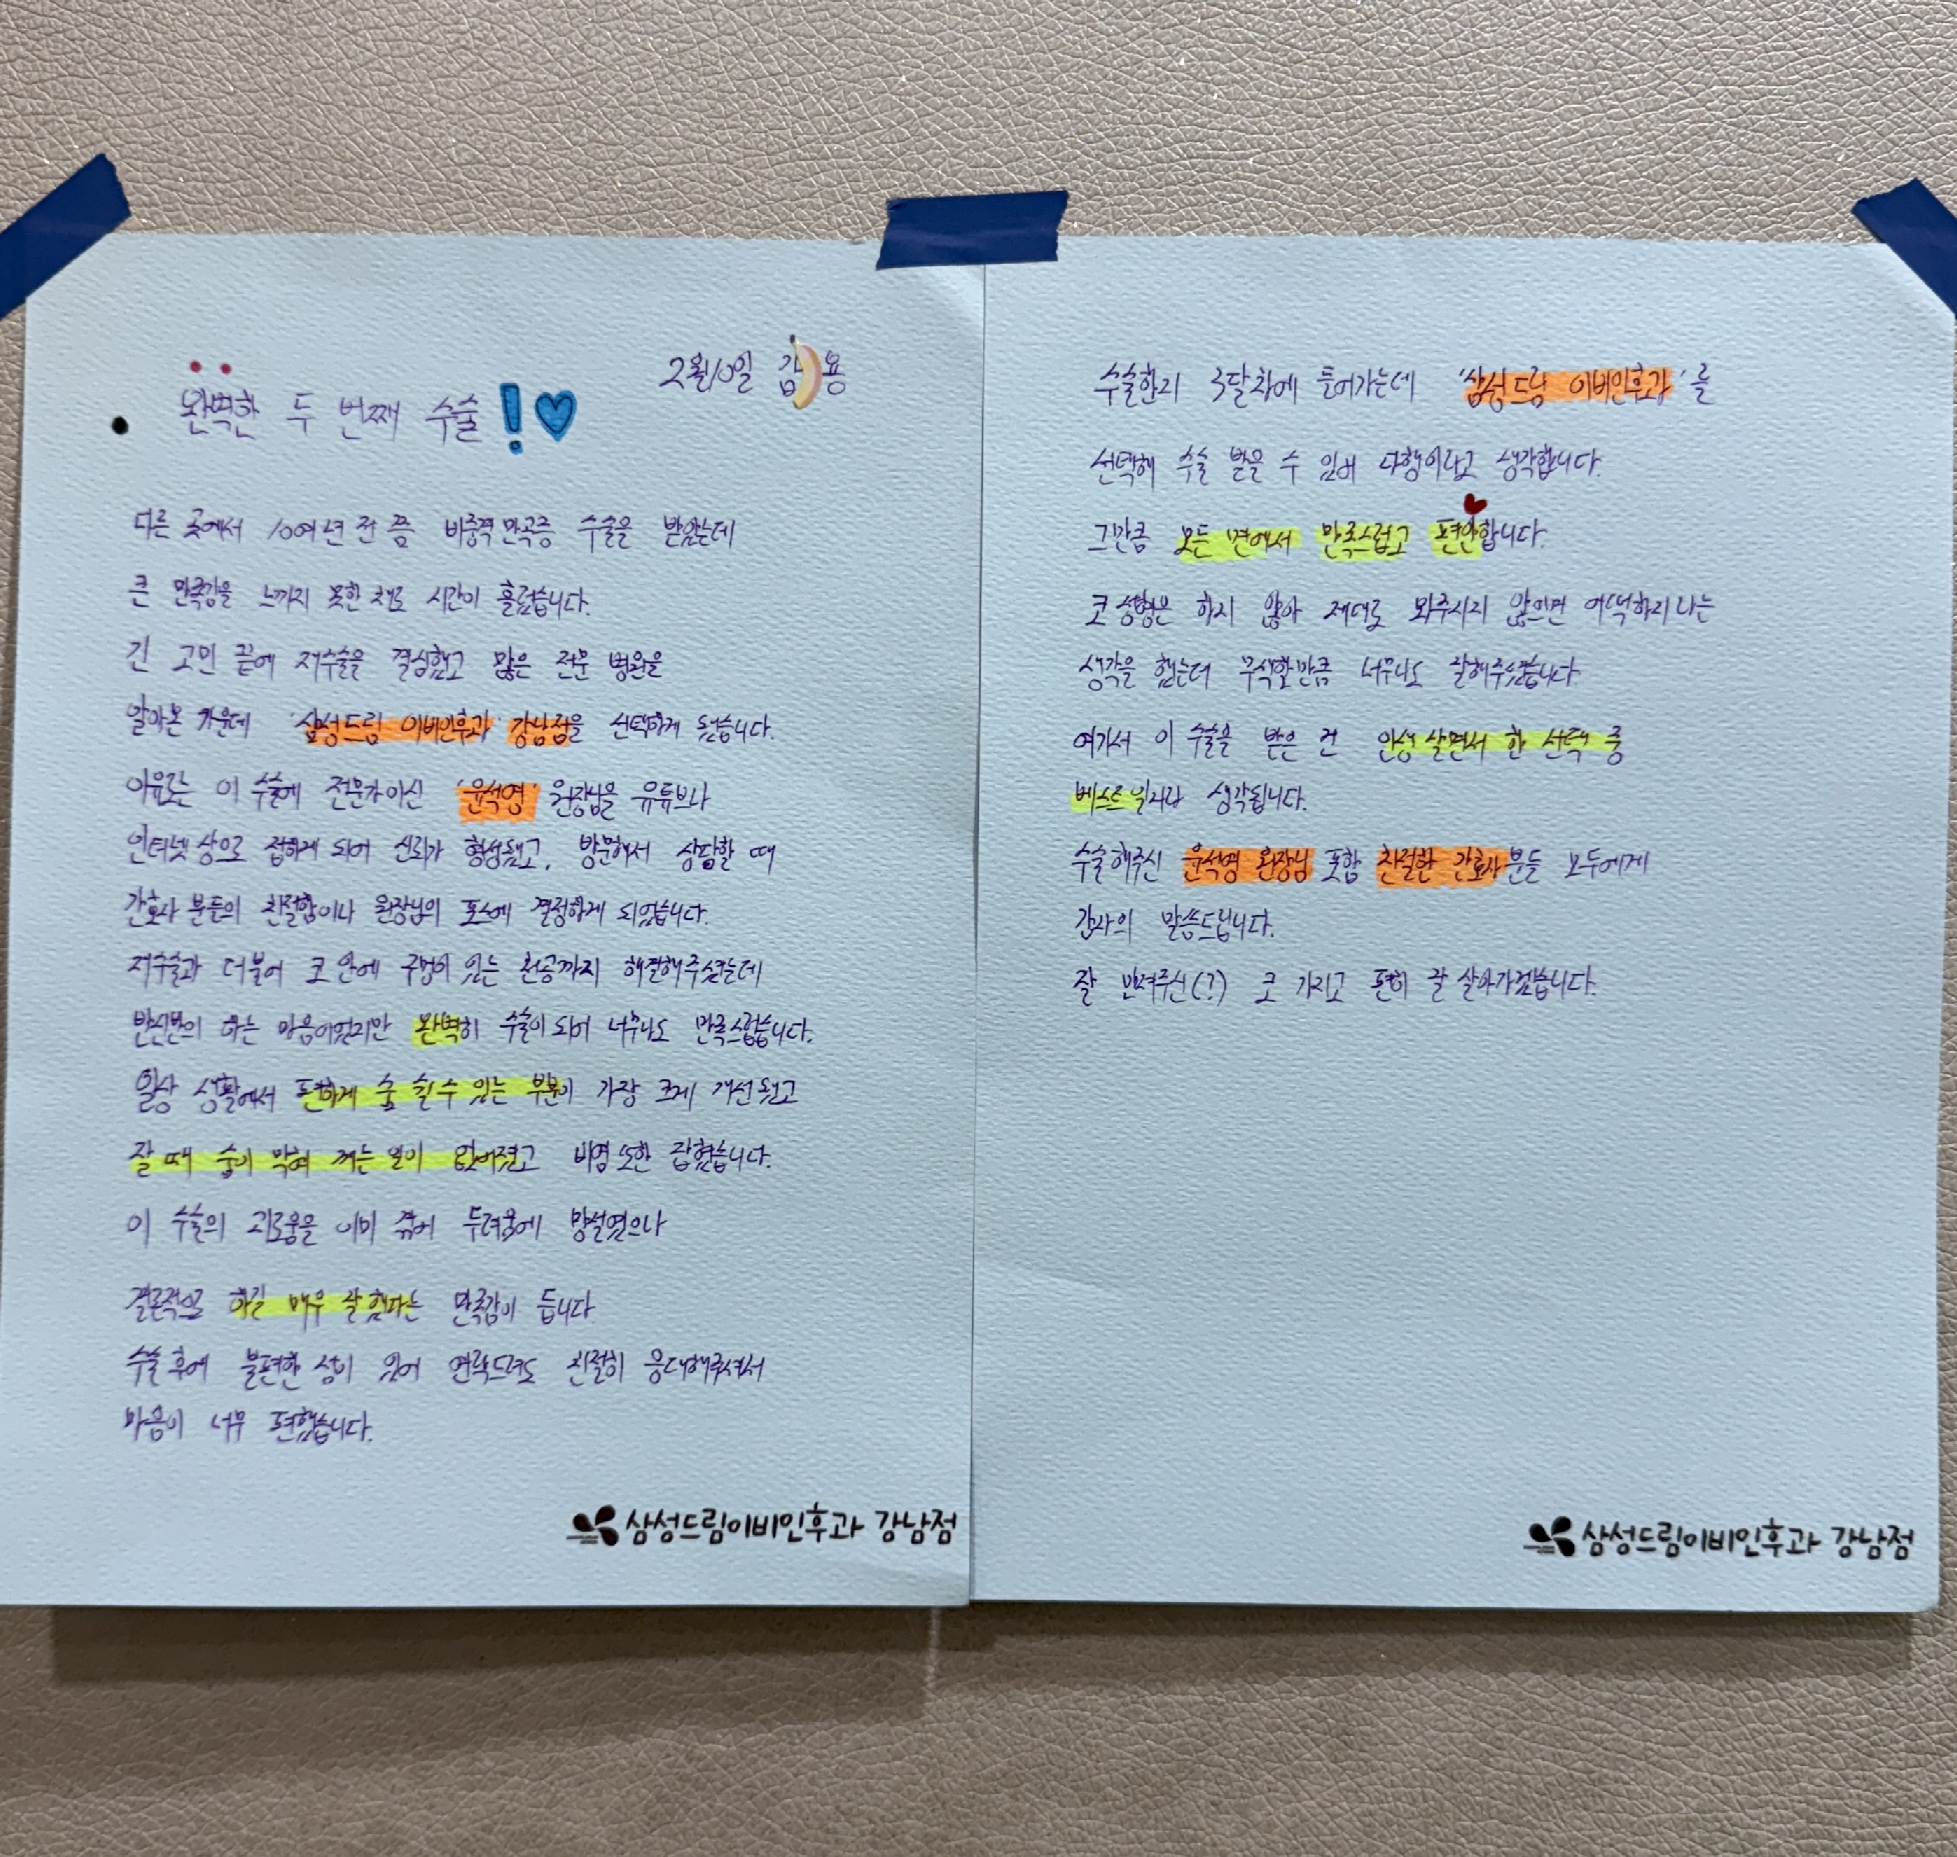 2월10일 김 용
완벽한 두 번째 수술!
다른 곳에서 10여년 전 쯤 비중격만곡증 수술을 받았는데
큰 만족감을 느끼지 못한 채로 시간이 흘렀습니다.
긴 고민 끝에 재수술을 결심했고 많은 전문 병원을
알아본 가운데 '삼성드림 이비인후과 강남점을 선택하게 됐습니다.
이유로는 이 수술에 전문가이신 '윤석영' 원장님을 유튜브나
인터넷 상으로 접하게 되어 신뢰가 형성됐고, 방문해서 상담할 때
간호사 분들의 친절함이나 원장님의 포스에 결정하게 되었습니다.
재수술과 더불어 코 안에 구멍이 있는 천공까지 해결해주셨는데
반신반의 하는 마음이었지만 완벽히 수술이 되어 너무나도 만족스럽습니다.
일상 생활에서 편하게 숨 쉴 수 있는 부분이 가장 크게 개선됐고
잘 때 숨이 막혀 깨는 일이 없어졌고 비염 또한 잡혔습니다.
이 수술의 괴로움을 이미 겪어 두려움에 망설였으나
결론적으로 하길 매우 잘했다는 만족감이 듭니다
수술 후에 불편한 점이 있어 연락드려도 친절히 응대해주셔서
마음이 너무 편했습니다.
삼성드림이비인후과 강남점
수술한지 3달차에 들어가는데 '삼성드림 이비인후과'를
선택해 수술 받을 수 있어 다행이라고 생각합니다.
그만큼 모든 면에서 만족스럽고 편안합니다.
코 성형은 하지 않아 제대로 봐주시지 않으면 어떡하지라는
생각을 했는데 무색할만큼 너무나도 잘해주셨습니다.
여기서 이 수술을 받은 건 인생 살면서 한 선택 중
베스트일거라 생각됩니다.
수술해주신 윤석영 원장님 포함 친절한 간호사분들 모두에게
감사의 말씀드립니다.
잘 만져주신(?) 코 가지고 편히 잘 살아가겠습니다.
삼성드림이비인후과 강남점